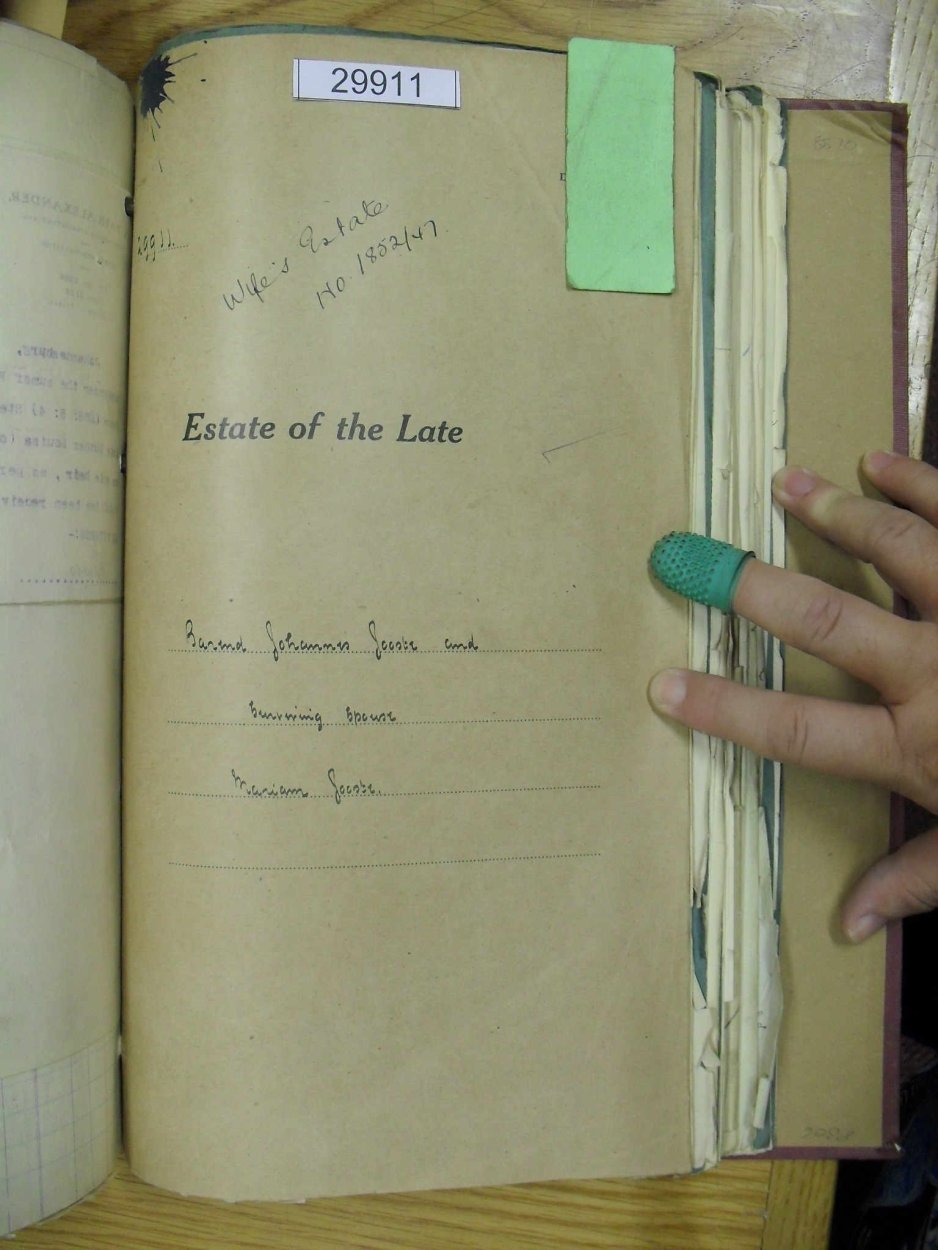 29911
29911
Wife's Estate
No. 1852/47.
Estate of the Late
Barend Johannes Jooste and
Surviving Spouse
Mariam Jooste.
ALEXANDER.